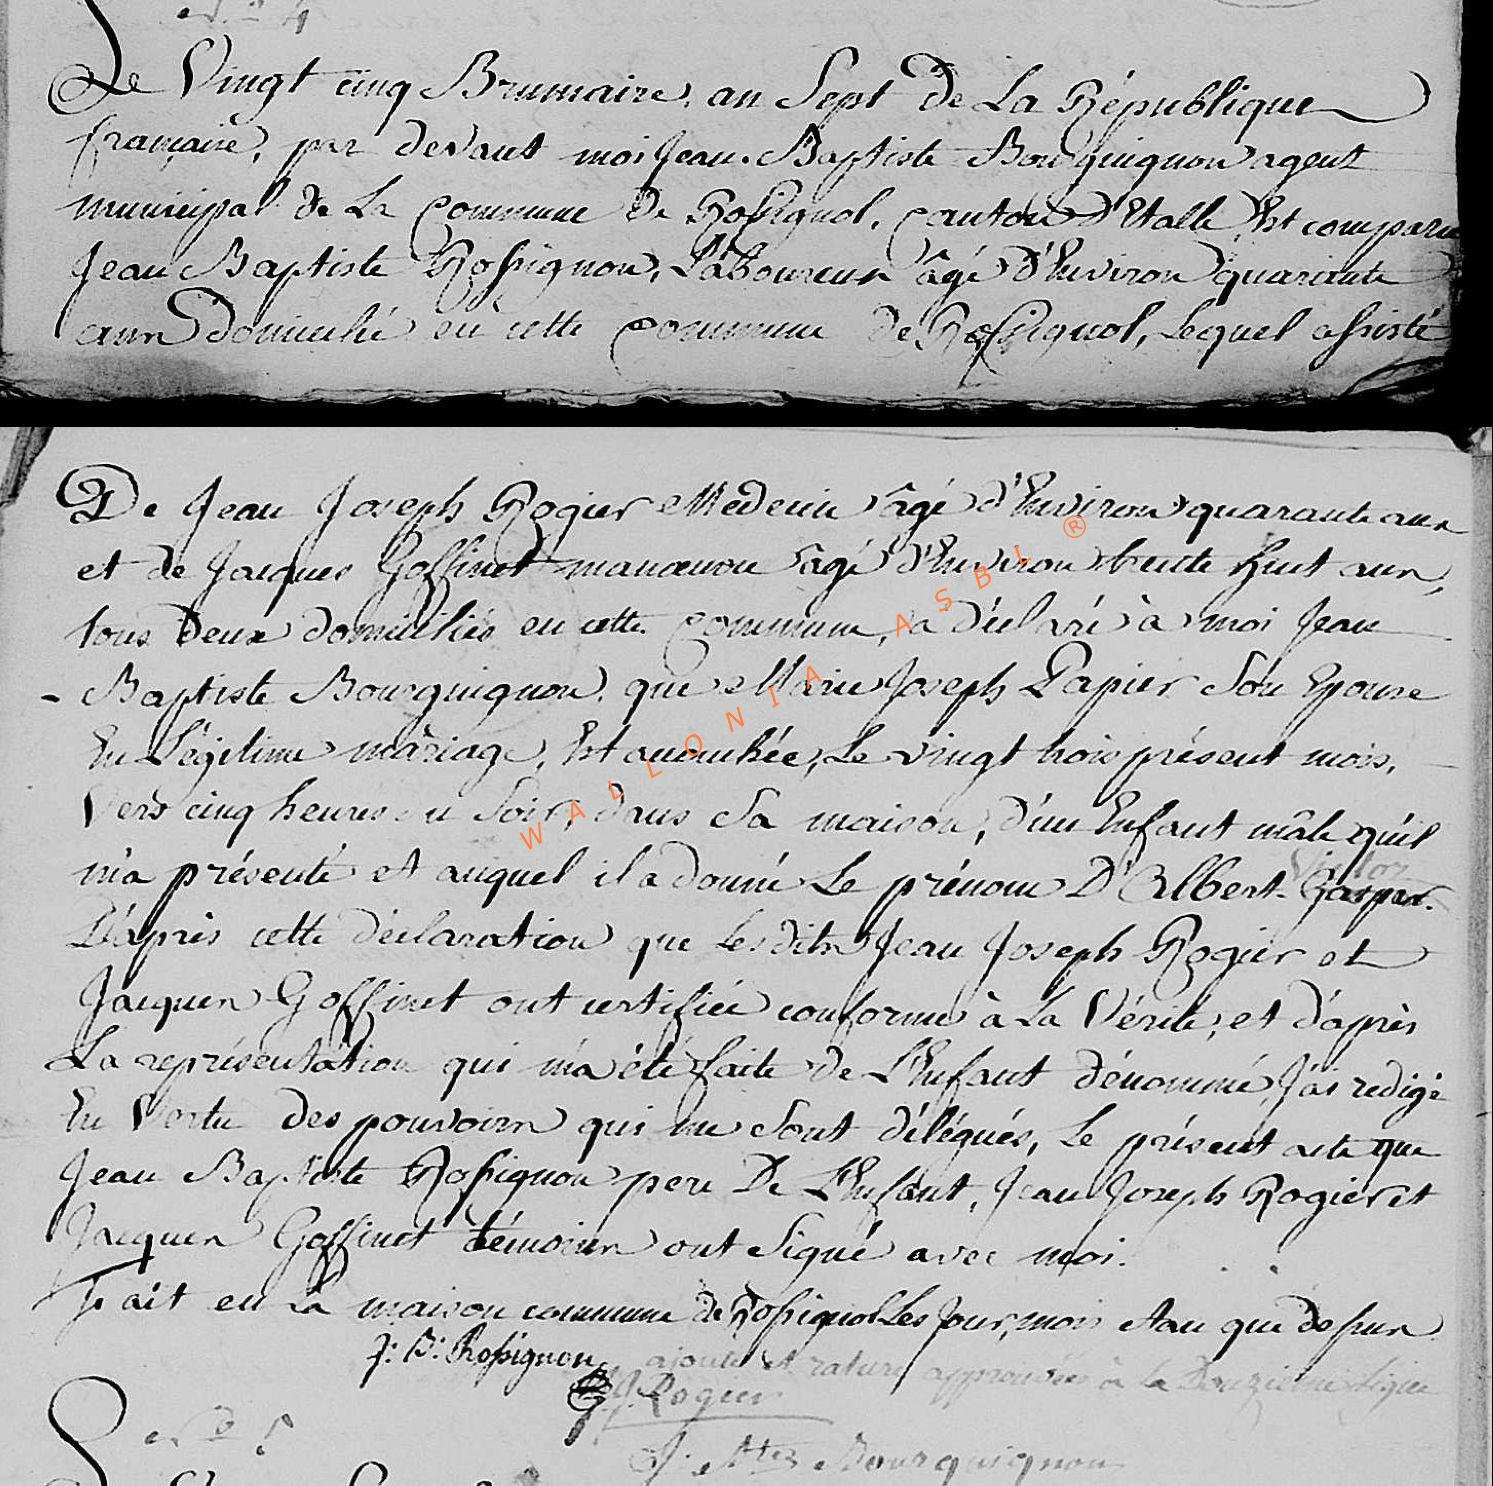 N.o 4
Le Vingt cinq Brumaire, an Sept de La République
française, par devant moi Jean-Baptiste Bourguignon agent
municipal de La Commune de Rossignol, Canton d'Etalle, Est comparu
Jean Baptiste Rossignon, Laboureur âgé d'Environ quarante
ans domicilié en cette Commune de Rossignol, Lequel assisté
De Jean Joseph Rogier Médecin âgé d'Environ quarante ans
et de Jacques Goffinet manœuvre âgé d'Environ trente huit ans,
tous deux domiciliés en cette Commune, a déclaré à moi Jean
- Baptiste Bourguignon, que Marie Joseph Papier Son Epouse
En Légitime mariage, Est accouchée, Le vingt trois présent mois,
Vers cinq heures du Soir, dans Sa maison, d'un Enfant mâle qu'il
Victor
m'a présenté et auquel il a donné Le prénom D'Albert-Gaspar.
D'après cette déclaration que Les dits Jean Joseph Rogier et
Jacques Goffinet ont certifiée conforme à La Vérité, et d'après
La représentation qui m'a été faite de L'Enfant dénommé, J'ai redigé
En Vertu des pouvoirs qui me Sont délégués, Le présent acte que
Jean Baptiste Rossignon pere De L'Enfant, Jean Joseph Rogier et
Jacques Goffinet témoins ont Signé avec moi.
Fait en La maison commune de Rossignol Les Jour, mois et an que dessus
J: B: Rossignon ajoute et rature approuvées à la Douzieme Ligne
J.J. Rogier
N.o 5
J: Bte Bourguignon
WALLONIA ASBL ®